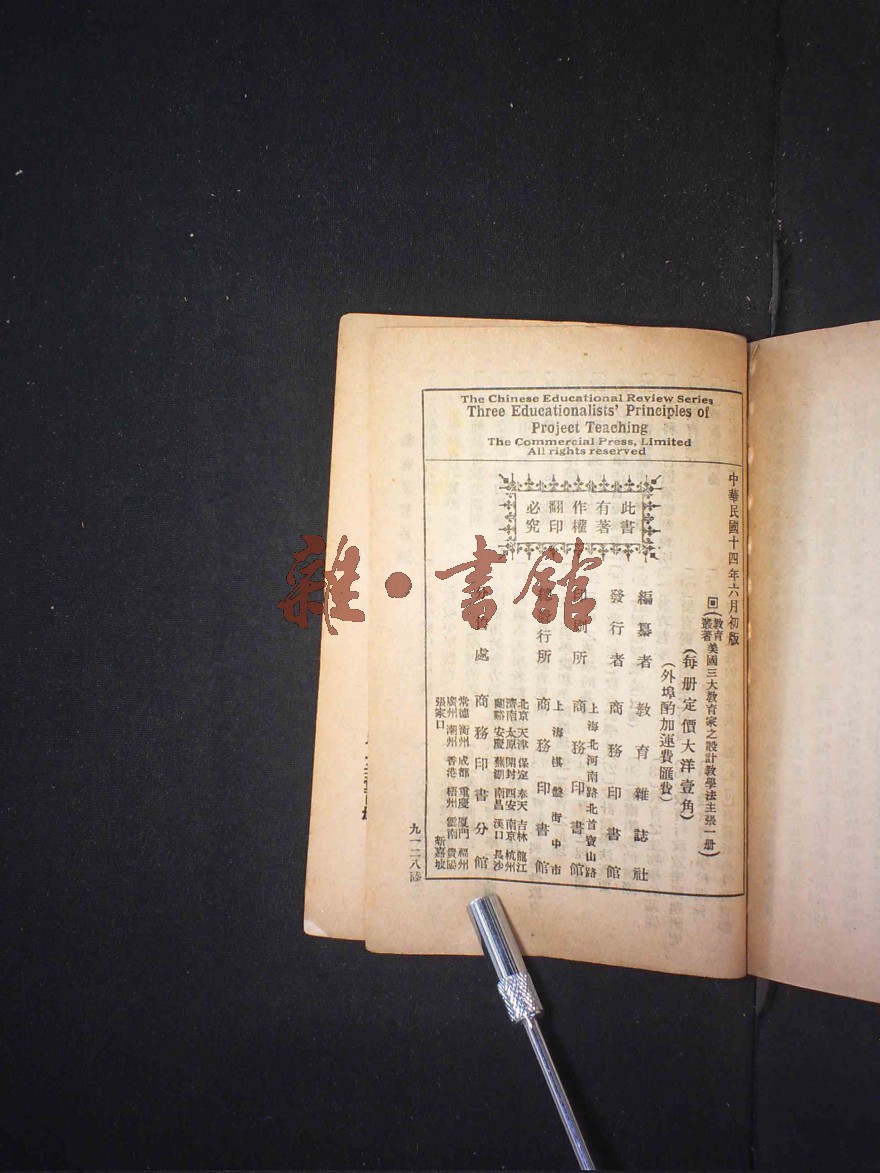 The Chinese Educational Review Series
Three Educationalists' Principles of
Project Teaching
The Commercial Press, Limited
All rights reserved
中華民國十四年六月初版
教育叢著
美國三大教育家之設計教學法主張一册
(每册定價大洋壹角)
(外埠酌加運費匯費)
此書
有著
作權
翻印
必究
編纂者 教育雜誌社
發行者 商務印書館
上海北河南路北首寶山路
印刷所 商務印書館
上海棋盤街中市
發行所 商務印書館
北京 天津 保定 奉天 吉林 龍江
濟南 太原 開封 西安 南京 杭州
蘭谿 安慶 蕪湖 南昌 漢口 長沙
分售處 商務印書分館
常德 衡州 成都 重慶 厦門 福州
廣州 潮州 香港 梧州 雲南 貴陽
張家口 新嘉坡
九一二八陸
雜·書館